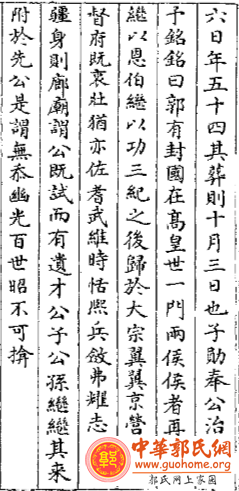 六日年五十四其葬則十月三日也子勛奉公治
予銘銘曰郭有封國在髙皇世一門兩侯侯者再
繼以恩伯繼以功三紀之後歸於大宗翼翼京營
督府既衷壯猶亦佐耆武維時恬熈兵斂弗耀志
疆身則廊廟謂公既試而有遺才公子公孫繼繼其來
附於先公是謂無忝幽光百世昭不可揜
中華郭氏網
www.guohome.org
郭氏网上家园